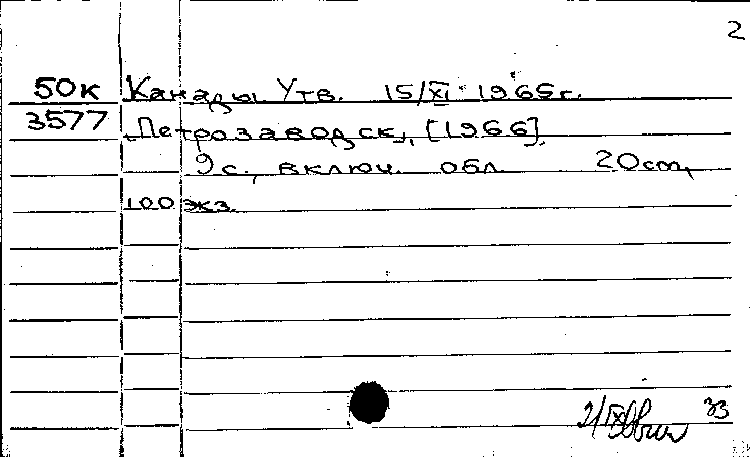 2
50к Канады Утв. 15/XI-1965г.
3577 Петрозаводск, [1966].
9с., включ. обл. 20cm,
100 экз.
33